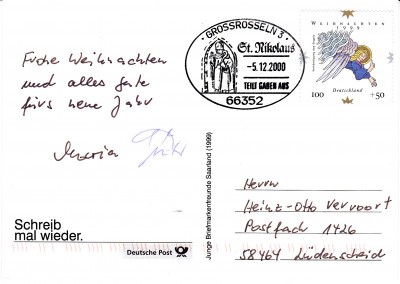 Frohe Weihnachten
und alles Gute
fürs neue Jahr
Maria
GROSSROSSELN 3
St. Nikolaus
-5.12.2000
TEILT GABEN AUS
66352
WEIHNACHTEN
1999
100 +50
Deutschland
Herrn
Heinz-Otto Vervoort
Postfach 1426
58464 Lüdenscheid
Junge Briefmarkenfreunde Saarland (1999)
Schreib
mal wieder.
Deutsche Post